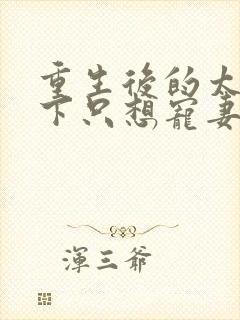 重生後的太
下只想寵妻
渾三爺